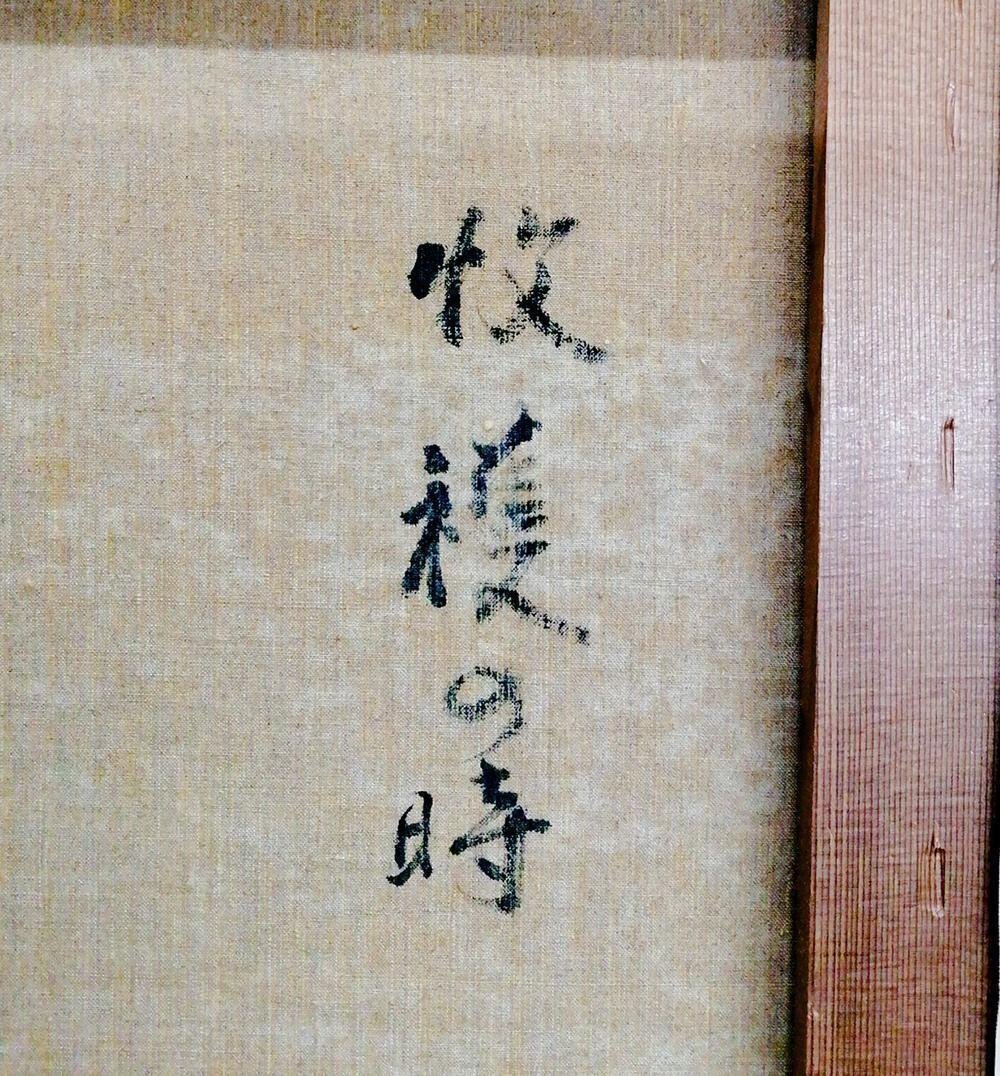 收穫の時